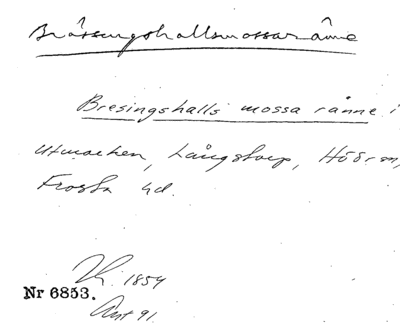 Bråsingshallsmossaränne
Bresingshalls mossa ränne i
Utmarken, Långstorp, Höörs sn,
Frosta hd.
1854
Nr 6853.
Ant 91.